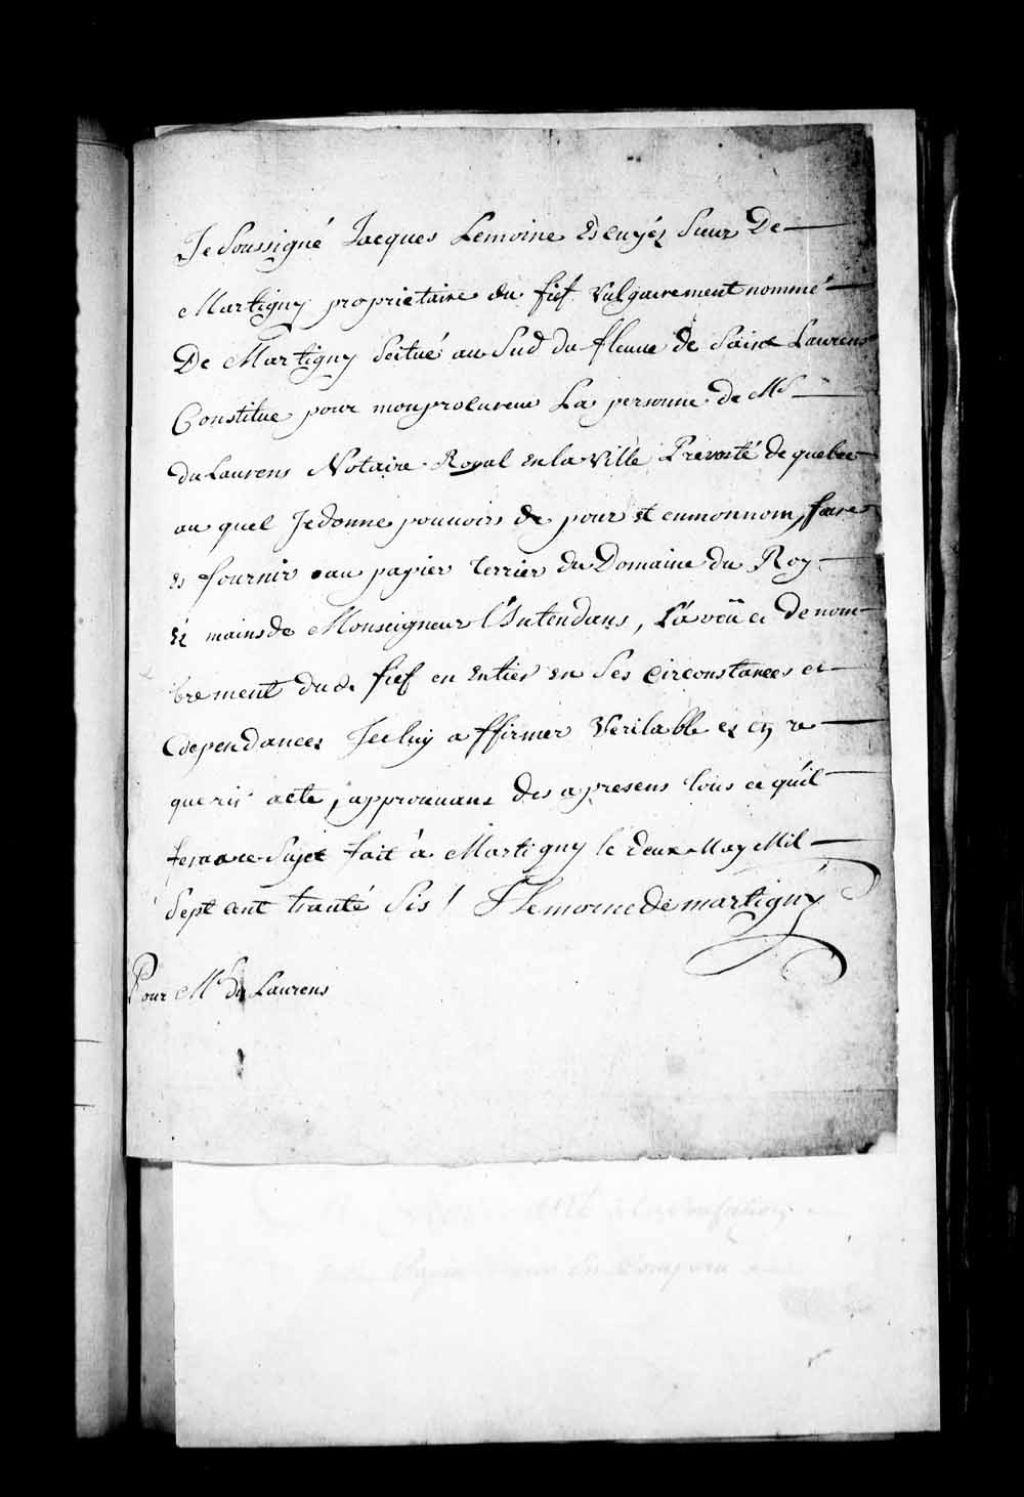 Je Soussigné Jacques Lemoine Escuyér Sieur De
Martigny proprietaire du fief Vulgairement nommé
De Martigny Scitué au Sud du fleuue de Saint Laurens
Constitue pour monprocureur La personne de Mr
du Laurens Notaire Royal en la Ville Prevosté de quebec
au quel Je donne pouuoir de pour et enmonnom, faire
et fournir au papier terrier du Domaine du Roy
Ez mains de Monseigneur l'Intendant, L'aveü et Denom
brement dud. fief en Entier en Ses Circonstances et
dependances Jceluy affirmer Veritable et en re
querir acte, approuuant des apresens tous ce qu'il
feraace Sujet fait à Martigny le deux May Mil
Sept cent trante Sis / J Lemoine de martigny
Pour Mr du Laurens